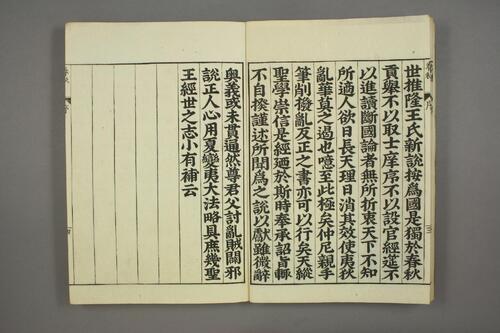 世推隆王氏新說按為國是獨於春秋
貢舉不以取士庠序不以設官經筵不
以進讀斷國論者無所折衷天下不知
所適人欲日長天理日消其效使夷狄
亂華莫之遏也噫至此極矣仲尼親手
筆削撥亂反正之書亦可以行矣天縱
聖學崇信是經廼於斯時奉承詔旨輒
不自揆謹述所聞為之說以獻雖微辭
奧義或未貫通然尊君父討亂賊闢邪
說正人心用夏變夷大法略具庶幾聖
王經世之志小有補云